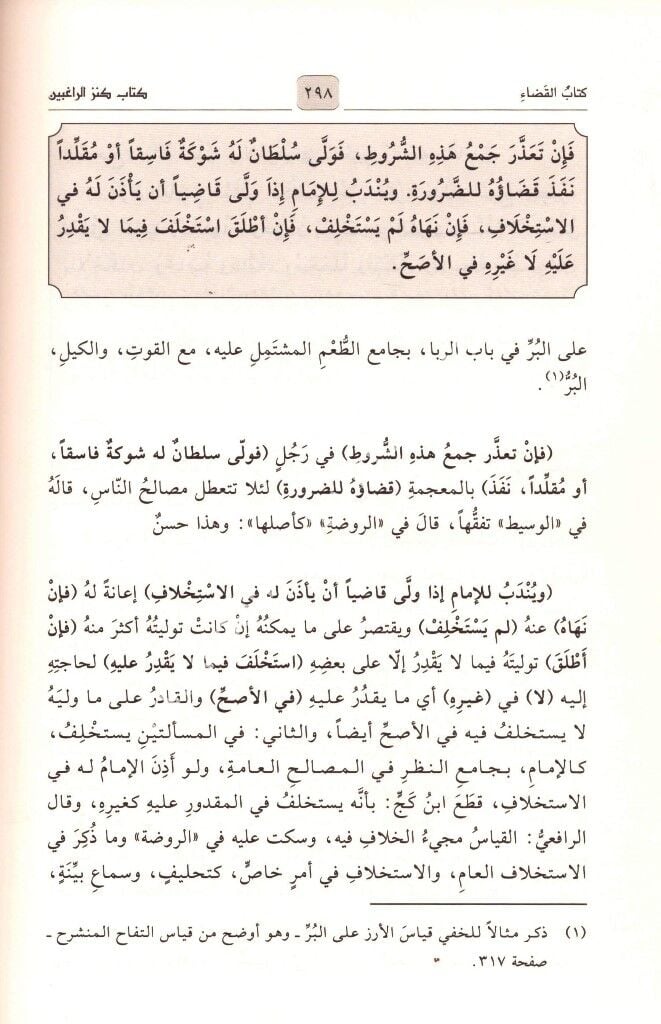 كتابُ القَضاءِ
٢٩٨
كتاب كنز الراغبين
فَإِنْ تَعَذَّرَ جَمْعُ هَذِهِ الشُّرُوطِ، فَوَلَّى سُلْطَانٌ لَهُ شَوْكَةٌ فَاسِقاً أوْ مُقَلِّداً
نَفَذَ قَضَاؤُهُ للضَّرُورَةِ. ويُنْدَبُ لِلإمَامِ إذَا وَلَّى قَاضِياً أن يَأْذَنَ لَهُ في
الاسْتِخْلَافِ، فَإنْ نَهَاهُ لَمْ يَسْتَخْلِفْ، فَإنْ أطْلَقَ اسْتَخْلَفَ فِيمَا لا يَقْدِرُ
عَلَيْهِ لَا غَيْرِهِ في الأصَحِّ.
على البُرِّ في باب الربا، بجامع الطُّعْمِ المشتَمِلِ عليه، مع القوتِ، والكيلِ،
البُرُّ(١).
(فإنْ تعذَّر جمعُ هذهِ الشُّروطِ) في رَجُلٍ (فولّى سلطانٌ له شوكةٌ فاسقاً،
أو مُقلِّداً، نَفَذَ) بالمعجمةِ (قضاؤهُ للضرورةِ) لئلا تتعطل مصالحُ النّاسِ، قالَهُ
في «الوسيط» تفقُّهاً، قالَ في «الروضةِ» «كأصلها»: وهذا حسنٌ
(ويُنْدَبُ للإمامِ إذا ولَّى قاضياً أنْ يأذَنَ له في الاسْتِخْلافِ) إعانةً لهُ (فإنْ
نَهَاهُ) عنهُ (لم يَسْتَخْلِفْ) ويقتصرُ على ما يمكنُهُ إنْ كانتْ توليتُهُ أكثرَ منهُ (فإنْ
أَطْلَقَ) توليتَهُ فيما لا يَقْدِرُ إلّا على بعضِهِ (استَخْلَفَ فيما لا يَقْدِرُ عليهِ) لحاجتِهِ
إليه (لا) في (غيرِهِ) أي ما يقدُرُ عليهِ (في الأصحِّ) والقادرُ على ما وليَهُ
لا يستخلفُ فيه في الأصحِّ أيضاً، والثاني: في المسألتيْنِ يستخْلِفُ،
كالإمامِ، بجامعِ النظرِ في المصالحِ العامةِ، ولو أَذِنَ الإمامُ له في
الاستخلافِ، قطَعَ ابنُ كَجٍّ: بأنَّه يستخلفُ في المقدورِ عليهِ كغيرِهِ، وقال
الرافعيُّ: القياسُ مجيءُ الخلافِ فيه، وسكت عليه في «الروضة» وما ذُكِرَ في
الاستخلاف العامِ، والاستخلافِ في أمرٍ خاصٍّ، كتحليفٍ، وسماعِ بيِّنَةٍ،
(١) ذكر مثالاً للخفي قياسَ الأرز على البُرّ ـ وهو أوضح من قياس التفاح المنشرح ـ
صفحة ٣١٧.